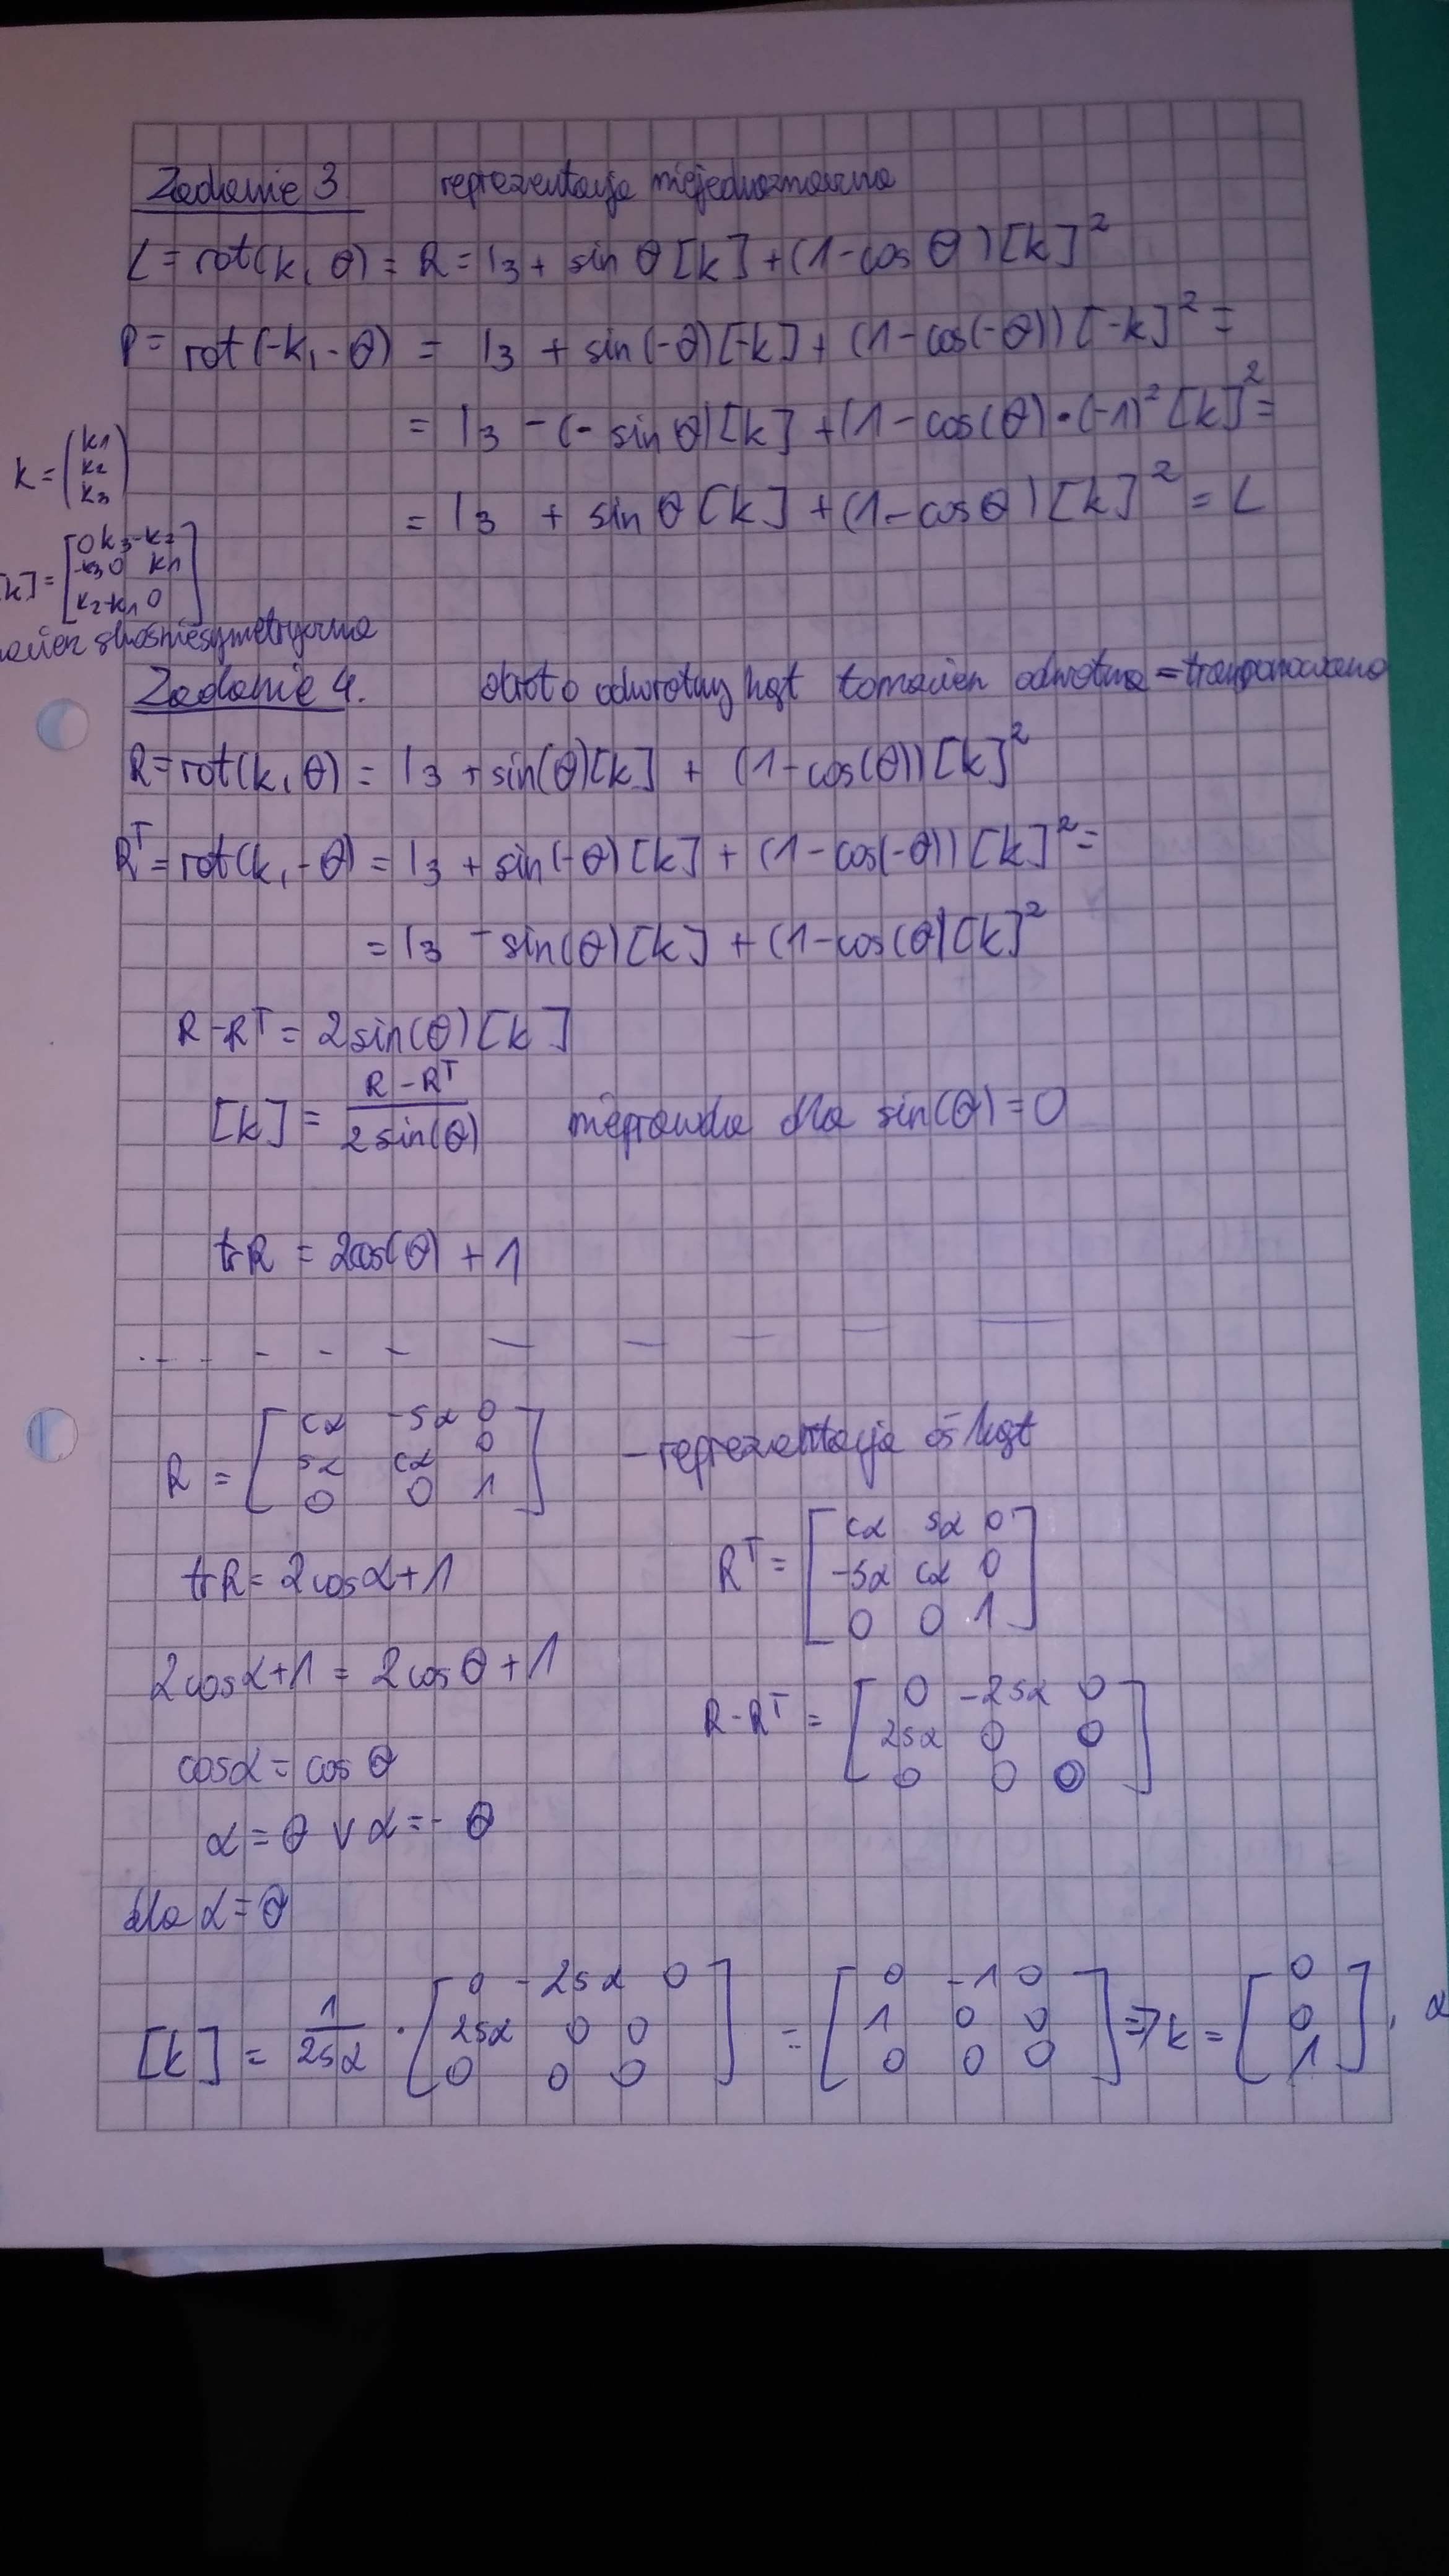 Zadanie 3 reprezentacja niejednoznaczna
L = rot(k, θ) = R = I3 + sin θ [k] + (1-cos θ) [k]²
P = rot(-k, -θ) = I3 + sin(-θ) [-k] + (1-cos(-θ)) [-k]² =
= I3 - (- sin θ) [k] + (1 - cos(θ) • (-1)² [k]² =
k = (k1 k2 k3)
= I3 + sin θ [k] + (1-cos θ) [k]² = L
[k] = [0 k3 -k2
-k3 0 k1
k2 -k1 0]
skośniesymetryczna
Zadanie 4. obrót o odwrotny kąt to macierz odwrotna = transponowana
R = rot(k, θ) = I3 + sin(θ) [k] + (1-cos(θ)) [k]²
Rᵀ = rot(k, -θ) = I3 + sin(-θ) [k] + (1-cos(-θ)) [k]² =
= I3 - sin(θ) [k] + (1-cos(θ) [k]²
R-Rᵀ = 2 sin(θ) [k]
[k] = (R - Rᵀ) / (2 sin(θ)) nieprawda dla sin(θ) = 0
trR = 2cos(θ) + 1
R = [cα -sα 0
sα cα 0
0 0 1] - reprezentacja oś kąt
trR = 2cosα+1
Rᵀ = [cα sα 0
-sα cα 0
0 0 1]
2cosα+1 = 2cosθ+1
R-Rᵀ = [0 -2sα 0
2sα 0 0
0 0 0]
cosα = cos θ
α = θ v α = -θ
dla α = θ
[k] = 1/2sα · [0 -2sα 0
2sα 0 0
0 0 0] = [0 -1 0
1 0 0
0 0 0] => k = [0
0
1], α